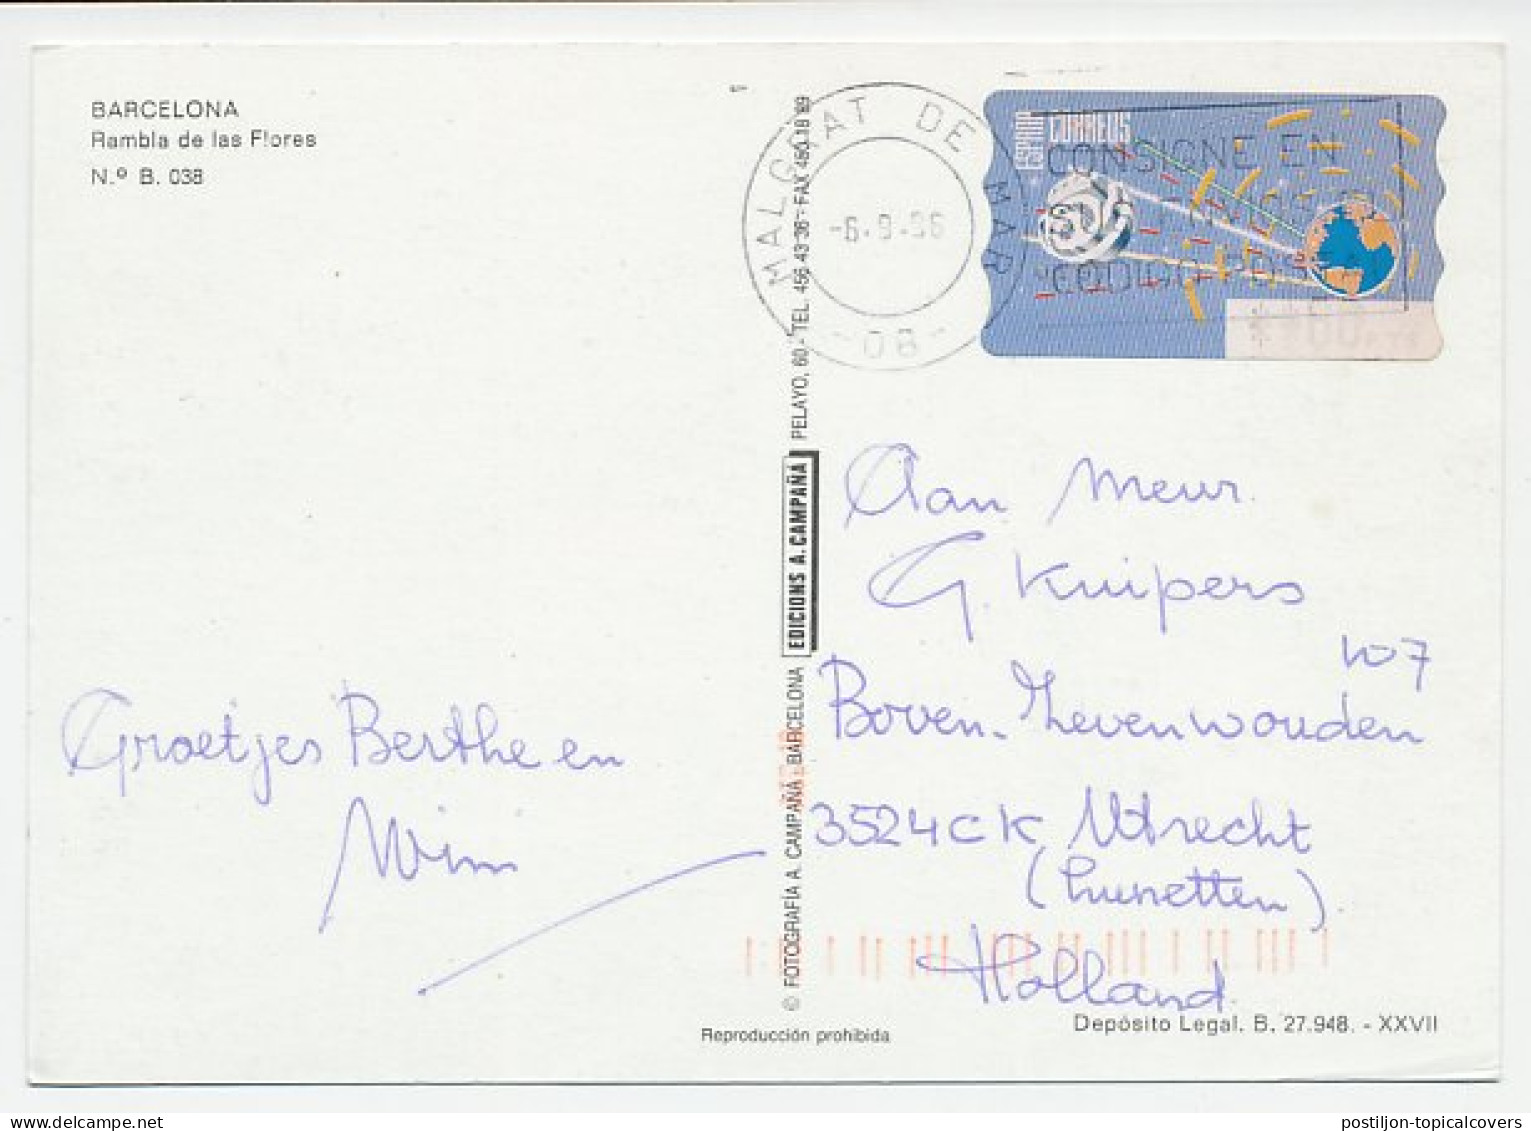 BARCELONA
Rambla de las Flores
N.º B. 038
MALGRAT DE MAR
-6.9.96
-08-
ESPAÑA
CORREOS
CONSIGNE EN
CODIGO POSTAL
PELAYO, 60 - TEL. 456 43 36 - FAX 460 18 89
EDICIONS A. CAMPAÑÁ
© FOTOGRAFÍA A. CAMPAÑÁ, BARCELONA
Aan Meur.
G. Kuipers
107
Boven-Zevenwouden
3524CK Utrecht
(Lunetten).
Holland.
Groetjes Berthe en
Wim
Reproducción prohibida
Depósito Legal. B. 27.948. - XXVII
postiljon-topicalcovers